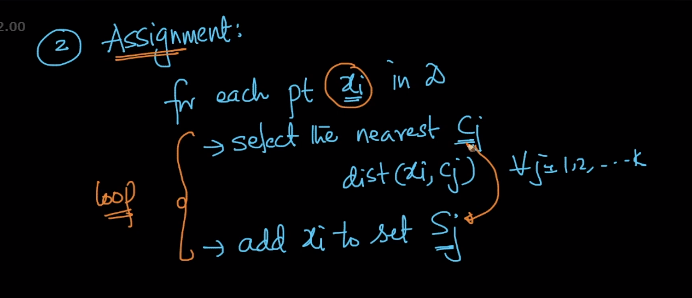 2.00
② Assignment:
for each pt xᵢ in D
→ select the nearest Cj
dist(xi, cj) ∀ j=1,2,...k
loop
→ add xi to set Sj